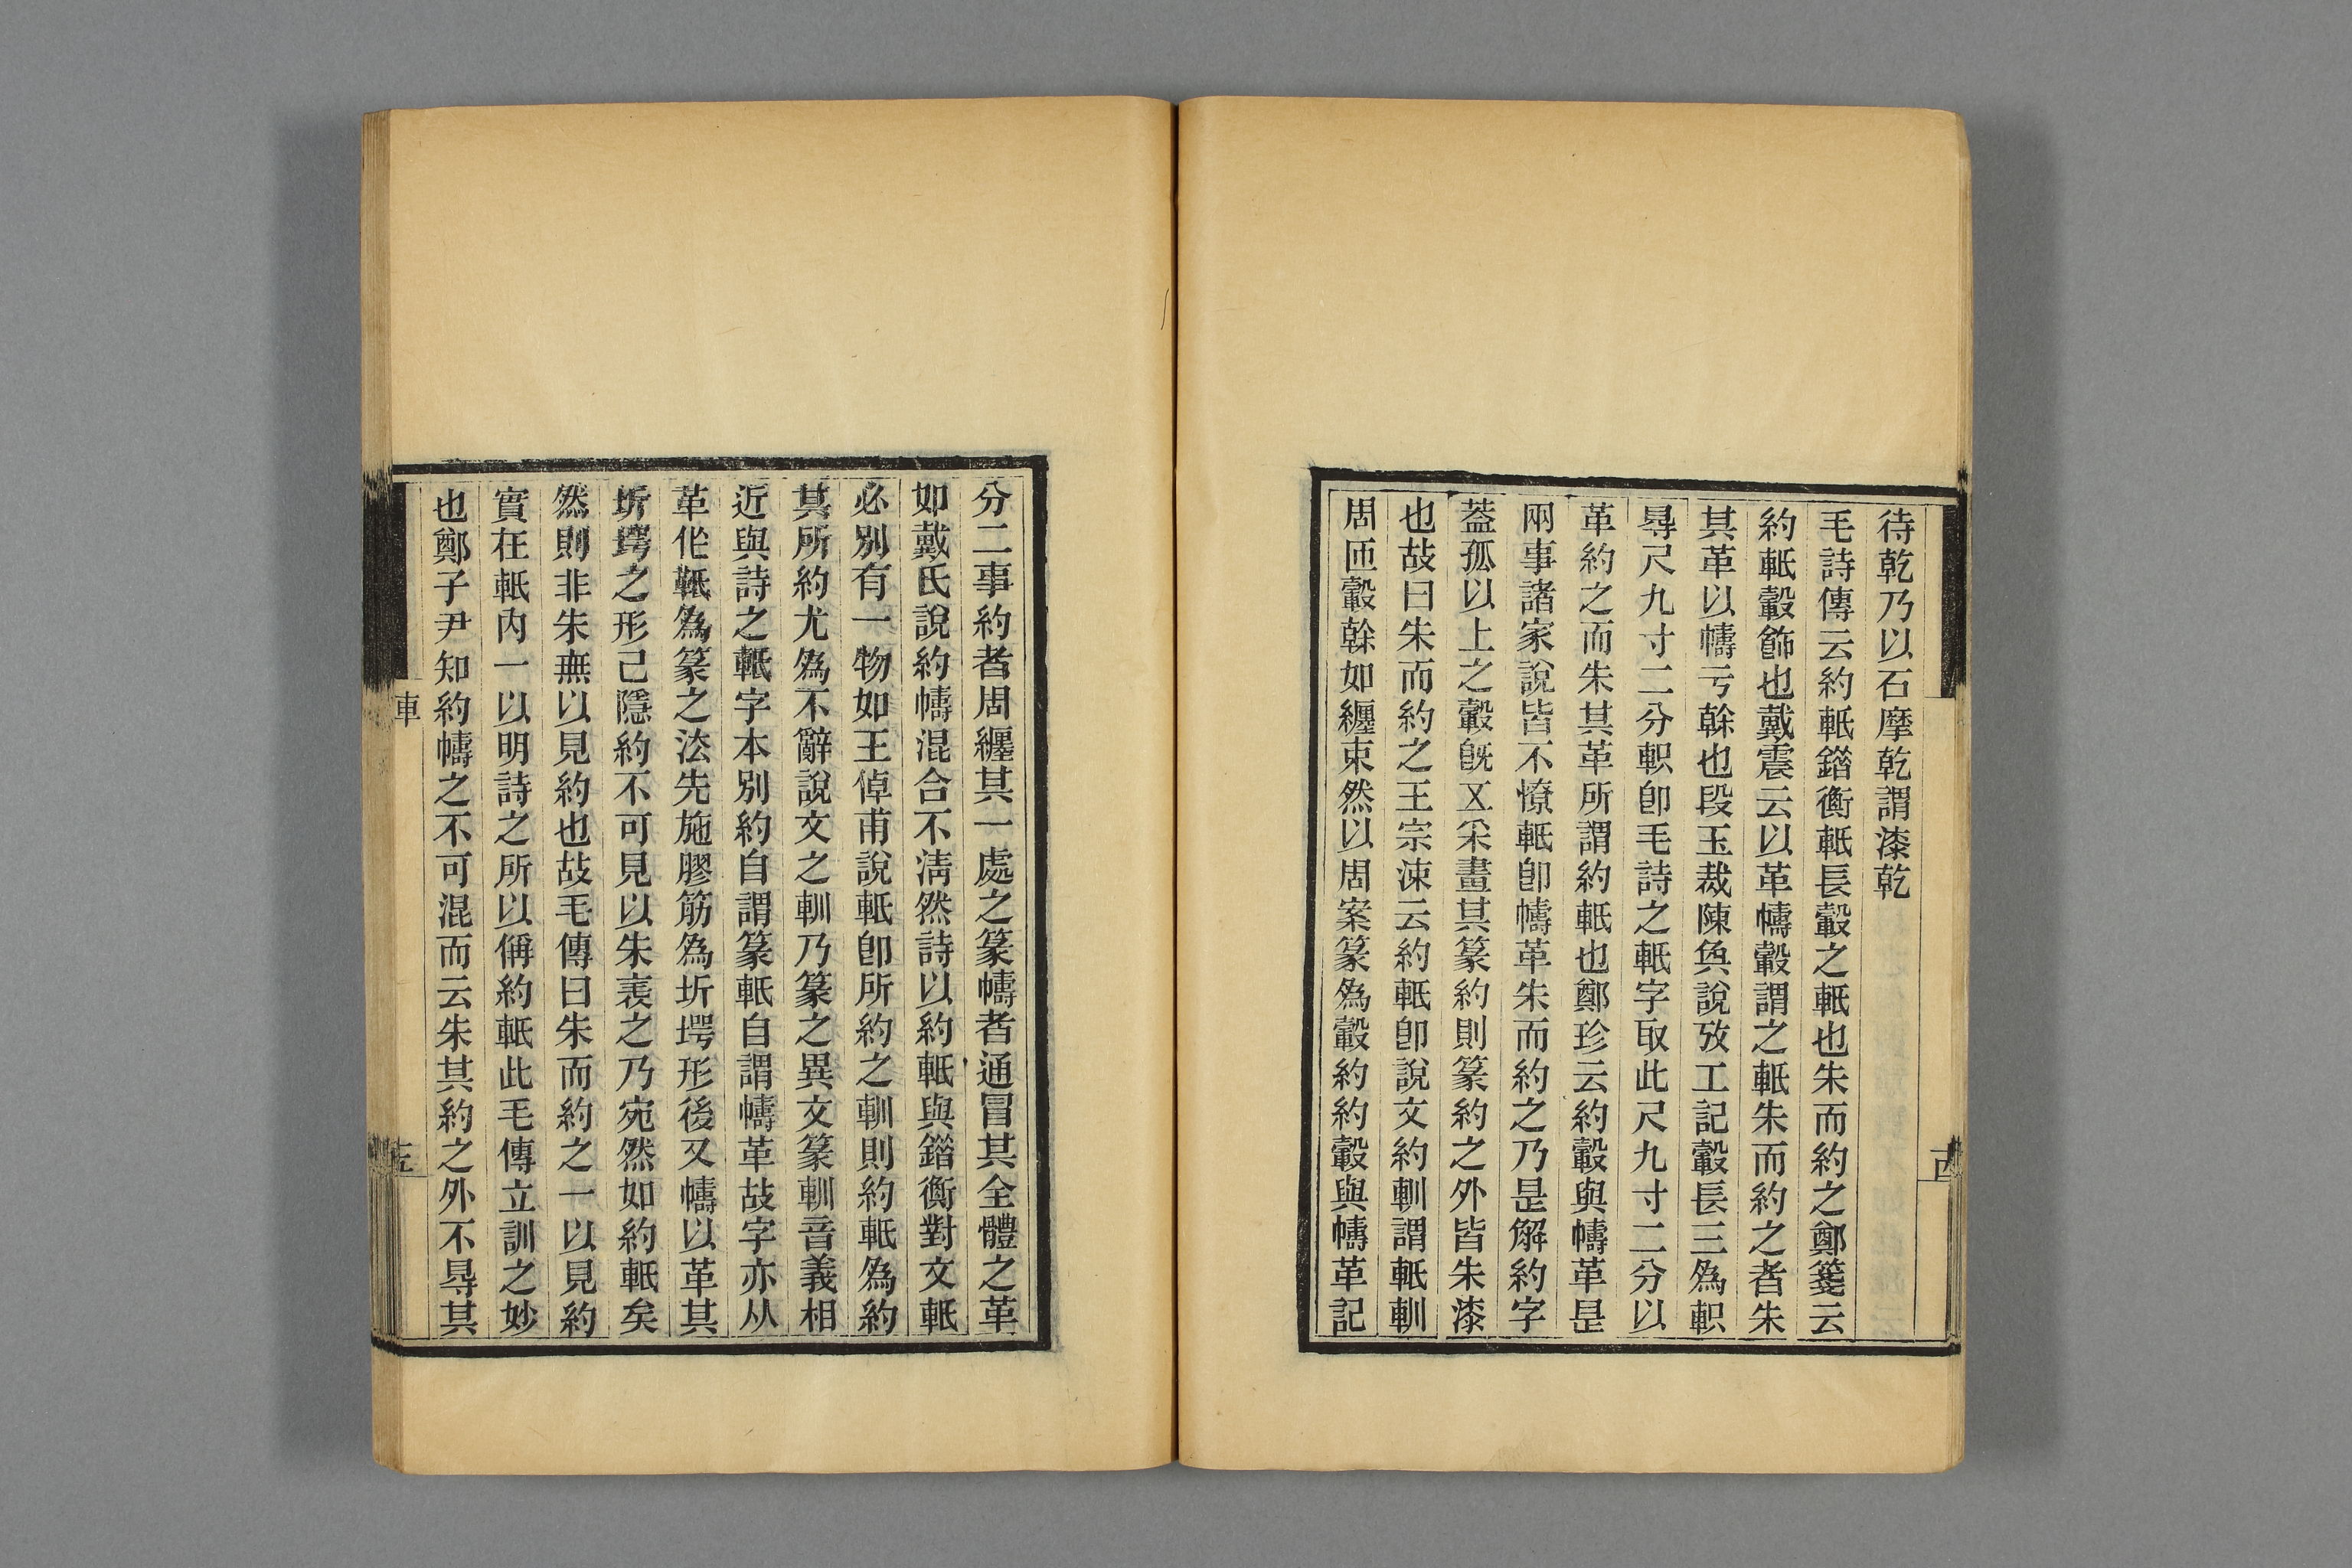 待乾乃以石摩乾謂漆乾
毛詩傳云約軝錯衡軝長轂之軝也朱而約之鄭箋云
約軝轂飾也戴震云以革幬轂謂之軝朱而約之者朱
其革以幬亏榦也段玉裁陳奐說攷工記轂長三爲軹
㝵尺九寸二分軹卽毛詩之軝字取此尺九寸二分以
革約之而朱其革所謂約軝也鄭珍云約轂與幬革是
兩事諸家說皆不憭軝卽幬革朱而約之乃是解約字
蓋孤以上之轂旣又采畫其篆約則篆約之外皆朱漆
也故曰朱而約之王宗涑云約軝卽說文約軐謂軝軐
周匝轂榦如纏束然以周案篆爲轂約約轂與幬革記
分二事約者周纏其一處之篆幬者通冒其全體之革
如戴氏說約幬混合不淸然詩以約軝與錯衡對文軝
必別有一物如王倬甫說軝卽所約之軐則約軝爲約
其所約尤爲不辭說文之軐乃篆之異文篆軐音義相
近與詩之軝字本別約自謂篆軝自謂幬革故字亦从
革作䡋爲篆之法先施膠筋爲圻堮形後又幬以革其
圻堮之形已隱約不可見以朱表之乃宛然如約軝矣
然則非朱無以見約也故毛傳曰朱而約之一以見約
實在軝內一以明詩之所以偁約軝此毛傳立訓之妙
也鄭子尹知約幬之不可混而云朱其約之外不㝵其
車